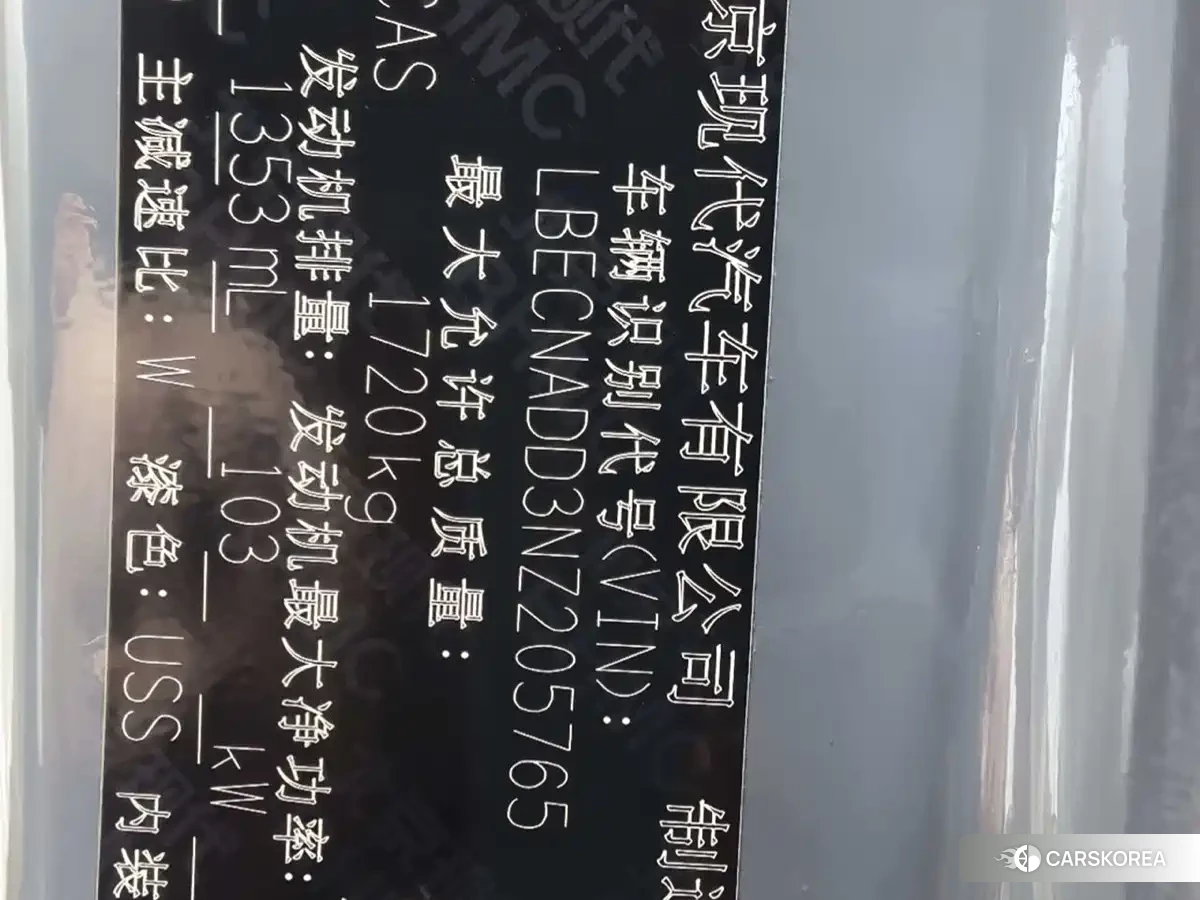 京现代汽车有限公司 制
车辆识别代号(VIN):
LBECNADD3NZ205765
最大允许总质量:
CAS 1720kg
发动机排量: 发动机最大净功率:
1353mL 103 kW
主减速比: W 漆色: USS 内装
CARSKOREA